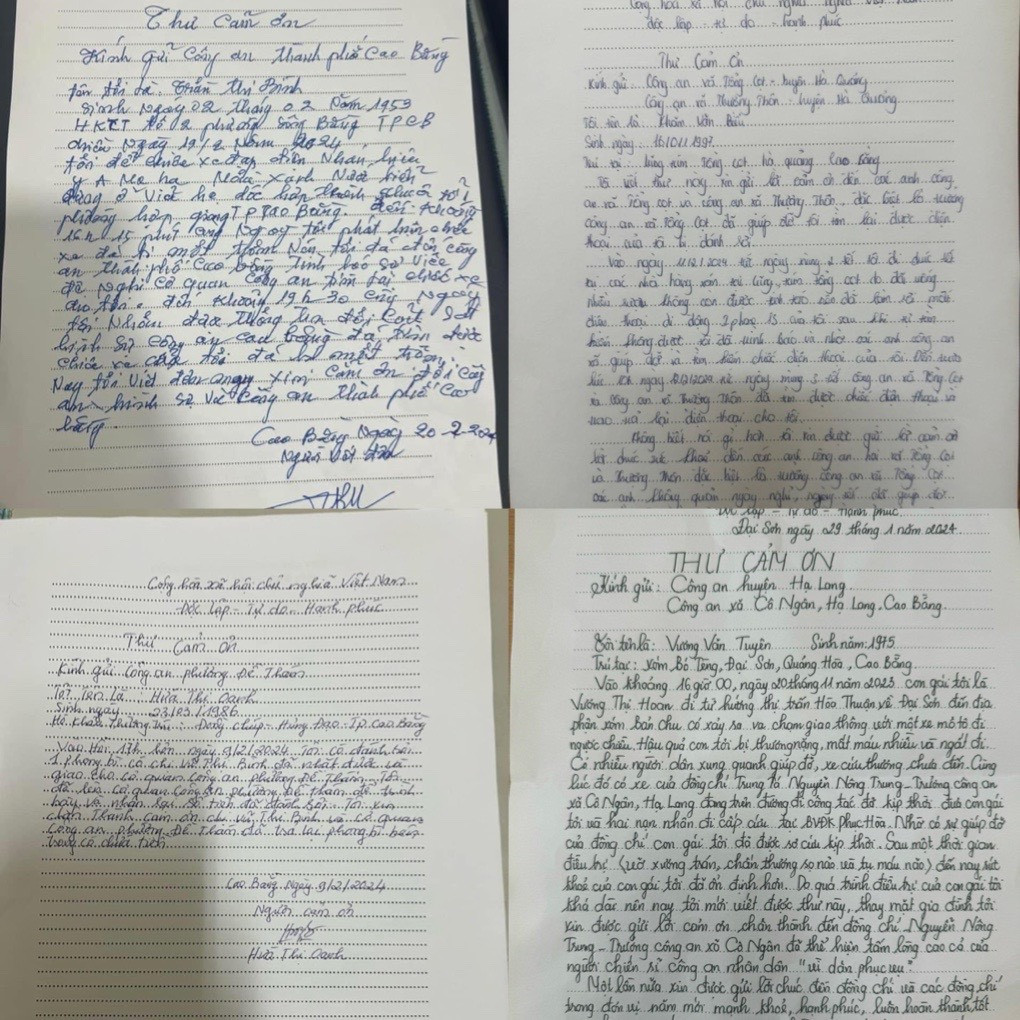 Thư Cảm ơn
Kính gửi Công an thành phố Cao Bằng
tên tôi là: Trần Thị Bình
Sinh Ngày 02 tháng 02 Năm 1953
HKTT tổ 2 phường Sông Bằng TPCB
chiều Ngày 19/2 Năm 2024
tôi để chiếc xe đạp điện Nhãn hiệu
16h 15 phút cùng Ngày tôi phát hiện chiếc
xe đã bị mất trộm Nên tôi đã đến công
an thành phố Cao Bằng trình báo sự việc
đề Nghị cơ quan Công an tìm lại chiếc xe
cho tôi. đến khoảng 19h 30 cùng Ngày
chiếc xe của tôi đã bị mất trộm.
Nay tôi viết đơn này xin cảm ơn đội Công
an hình sự và Công an thành phố Cao
bằng.
Cao Bằng Ngày 20-2-2024
Người viết đơn
Cộng hòa xã hội chủ nghĩa Việt Nam
độc lập - tự do - hạnh phúc
Thư Cảm Ơn
Kính gửi: Công an xã Tổng Cọt - huyện Hà Quảng
Công an xã Thượng Thôn - huyện Hà Quảng
Tôi tên là
Sinh ngày: 16/01/1997
Tôi viết thư này xin gửi lời cảm ơn đến các anh công
an xã Tổng Cọt và công an xã Thượng Thôn, đặc biệt là trưởng
công an xã Tổng Cọt đã giúp đỡ tôi tìm lại được điện
thoại của tôi bị đánh rơi.
Vào ngày 11/2/2024 tức ngày mùng 2 tết tôi đi chúc tết
nhiều rượu không còn được tỉnh táo nên đã làm rơi mất
điện thoại di động Iphone 13 của tôi sau khi tìm
kiếm không được tôi đã trình báo và nhờ các anh công an
xã giúp đỡ và tìm kiếm chiếc điện thoại của tôi. Đến
ngày 12/2/2024 tức ngày mùng 3 tết công an xã Tổng Cọt
và công an xã Thượng Thôn đã tìm được chiếc điện thoại và
trao trả lại điện thoại cho tôi.
Không biết nói gì hơn tôi xin được gửi lời cảm ơn
lời chúc sức khoẻ đến các anh công an hai xã Tổng Cọt
và Thượng Thôn đặc biệt là trưởng công an xã Tổng Cọt
các anh không quản ngày nghỉ, ngày tết để giúp đỡ
Cộng hòa xã hội chủ nghĩa Việt Nam
Độc lập - Tự do - Hạnh phúc
Thư Cảm ơn
Kính gửi Công an phường Đề Thám
Tôi Tên là: Hứa Thị Oanh
Sinh ngày: 23/03/1986
Hộ khẩu Thường Trú: Đoỏng Chúp - Hưng Đạo - TP Cao Bằng
Vào Hồi 17h hơn ngày 9/2/2024 Tôi có đánh rơi
1 phong bì có chị Vi Thị Bình đã nhặt được và
giao cho cơ quan Công an phường Đề Thám. Tôi
đã lên cơ quan Công an phường Đề Thám để trình
bày và nhận lại số tiền đã đánh rơi. Tôi xin
chân Thành cảm ơn chị Vi Thị Bình và cơ quan
Công an phường Đề Thám đã trả lại phong bì bên
trong có chứa tiền
Cao Bằng Ngày 9/2/2024
Người cảm ơn
Hứa Thị Oanh
Độc lập - Tự do - Hạnh phúc
Đại Sơn ngày 29 tháng 1 năm 2024.
THƯ CẢM ƠN
Kính gửi: Công an huyện Hạ Lang
Công an xã Cô Ngân, Hạ Lang. Cao Bằng.
Tôi tên là: Vương Văn Tuyên Sinh năm: 1975
Trú tại: Xóm Bó Tèng, Đại Sơn, Quảng Hòa, Cao Bằng.
Vào khoảng 16 giờ 00, ngày 20 tháng 11 năm 2023 con gái tôi là
Vương Thị Hoan đi từ hướng thị trấn Hòa Thuận về Đại Sơn đến địa
phận xóm Bản Chu có xảy ra va chạm giao thông với một xe mô tô đi
ngược chiều. Hậu quả con tôi bị thương nặng, mất máu nhiều và ngất đi.
Có nhiều người dân xung quanh giúp đỡ, xe cứu thương chưa đến. Cùng
lúc đó có xe của đồng chí Trung tá Nguyễn Nông Trung - Trưởng công an
xã Cô Ngân, Hạ Lang đang trên đường đi công tác đã kịp thời đưa con gái
tôi và hai nạn nhân đi cấp cứu tại BVĐK Phục Hòa. Nhờ có sự giúp đỡ
của đồng chí con gái tôi đã được sơ cứu kịp thời. Sau một thời gian
điều trị (vỡ xương trán, chấn thương sọ não và tụ máu não) đến nay sức
khoẻ của con gái tôi đã ổn định hơn. Do quá trình điều trị của con gái tôi
khá dài nên nay tôi mới viết được thư này, thay mặt gia đình tôi
xin được gửi lời cảm ơn chân thành đến đồng chí Nguyễn Nông
Trung - Trưởng công an xã Cô Ngân đã thể hiện tấm lòng cao cả của
người chiến sĩ công an nhân dân "vì dân phục vụ".
Một lần nữa xin được gửi lời chúc đến đồng chí và các đồng chí
trong đơn vị năm mới mạnh khoẻ, hạnh phúc, luôn hoàn thành tốt